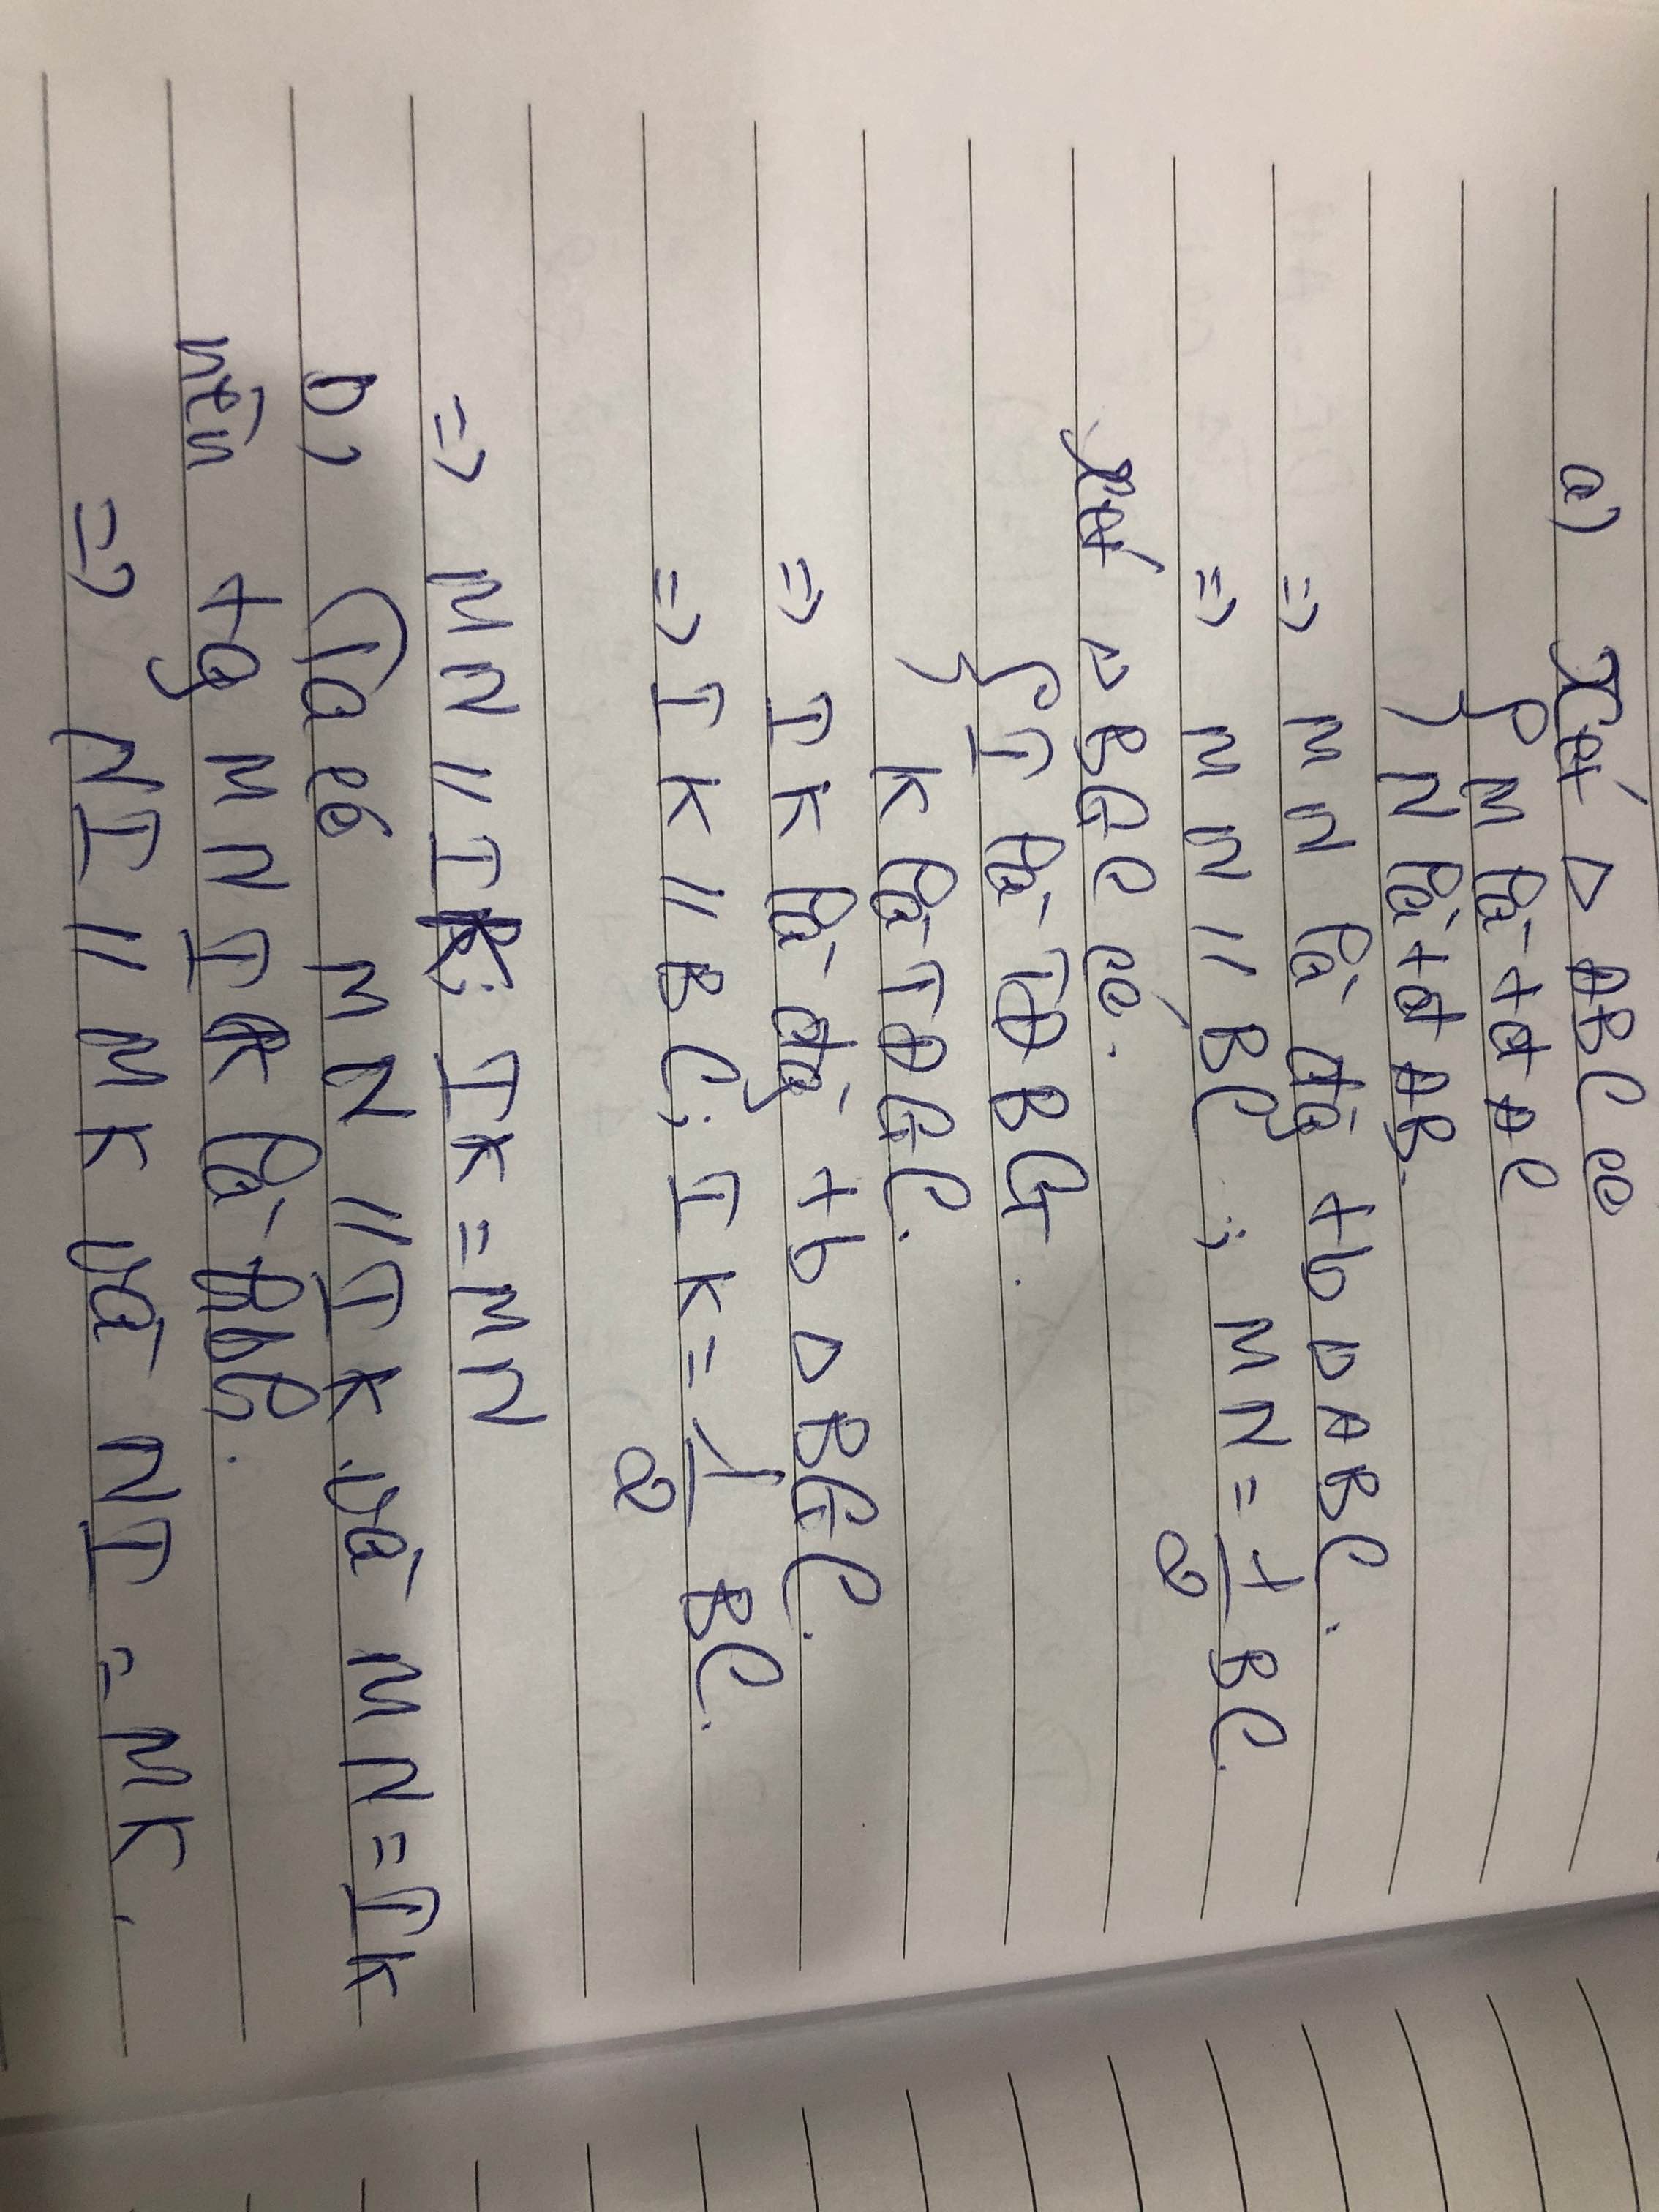 a) Xét △ ABC có
{ M là tđ AC
N là tđ AB.
=> MN là đg tb △ ABC.
=> MN // BC ; MN = 1/2 BC.
Xét △ BGC có.
{ I là TĐ BG.
K là TĐ GC.
=> IK là đg tb △ BGC.
=> IK // BC; IK = 1/2 BC.
=> MN // IK; IK = MN
b) Ta có MN // IK và MN = IK
nên tg MNIK là hbh.
=> NI // MK và NI = MK.